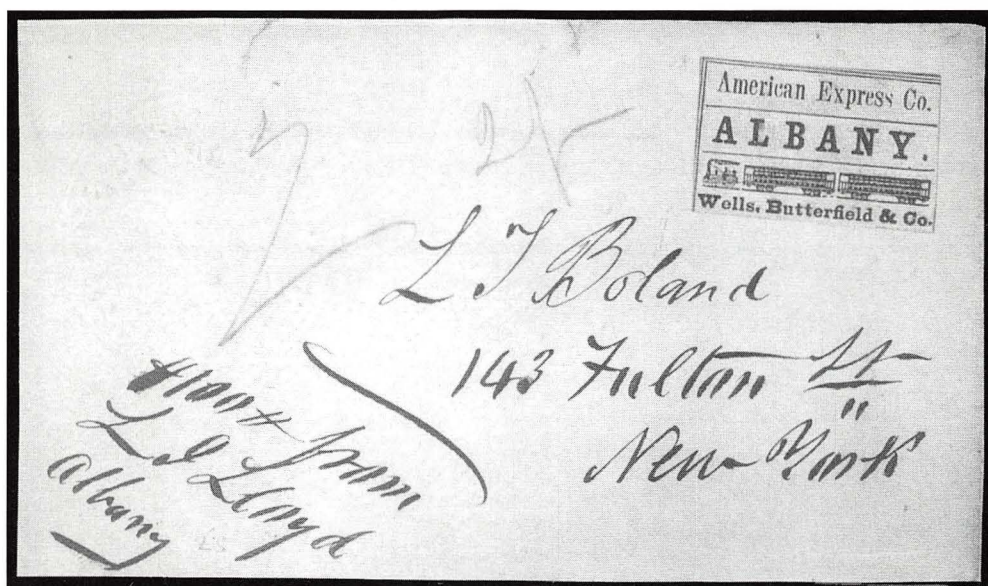 American Express Co.
ALBANY.
Wells, Butterfield & Co.
L J Boland
143 Fulton St
New York
from
L J Lloyd
Albany